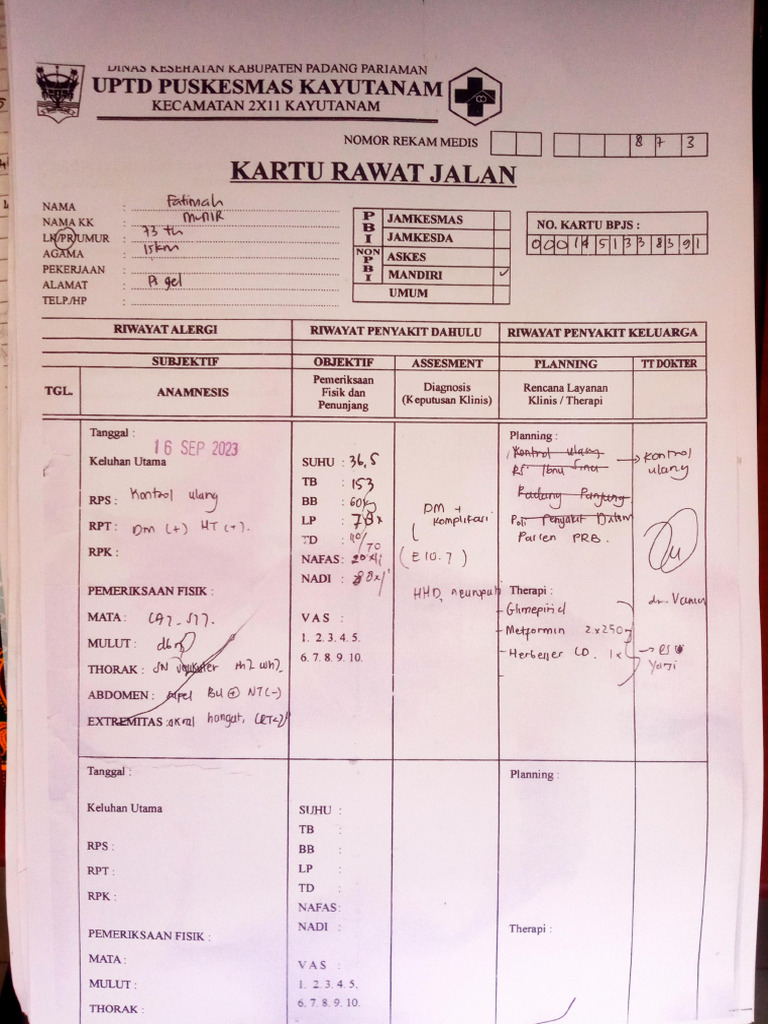 DINAS KESEHATAN KABUPATEN PADANG PARIAMAN
UPTD PUSKESMAS KAYUTANAM
KECAMATAN 2X11 KAYUTANAM
NOMOR REKAM MEDIS 8 7 3
KARTU RAWAT JALAN
NAMA : Fatimah
NAMA KK : MUNIR
LK/PR/UMUR : 73 th
AGAMA : Islam
PEKERJAAN :
ALAMAT : gel
TELP./HP :
PBI JAMKESMAS
JAMKESDA
NON PBI ASKES
MANDIRI ✓
UMUM
NO. KARTU BPJS :
RIWAYAT ALERGI RIWAYAT PENYAKIT DAHULU RIWAYAT PENYAKIT KELUARGA
SUBJEKTIF OBJEKTIF ASSESMENT PLANNING TT DOKTER
TGL. ANAMNESIS Pemeriksaan Fisik dan Penunjang Diagnosis (Keputusan Klinis) Rencana Layanan Klinis / Therapi
Tanggal : 16 SEP 2023
Keluhan Utama
RPS : Kontrol ulang
RPT : DM (+) HT (+).
RPK :
PEMERIKSAAN FISIK :
MATA :
MULUT : dbn
THORAK : SN vesikuler Rh- Wh-
ABDOMEN : BU + NT (-)
EXTREMITAS : akral hangat,
SUHU : 36,5
TB : 153
BB : 60kg
LP : 78
TD : 110/70
NAFAS : 20x/i
NADI : 88x/i
V A S :
1. 2. 3. 4. 5.
6. 7. 8. 9. 10.
DM +
komplikasi
(E10.7)
HHD, neuropati
Planning :
Kontrol ulang → kontrol ulang
RS Ibnu Sina
Padang Panjang
Poli Penyakit Dalam
Pasien PRB.
Therapi :
- Glimepirid
- Metformin 2x250
- Herbesser CD. 1x → RS
Yarsi
Tanggal :
Keluhan Utama
RPS :
RPT :
RPK :
PEMERIKSAAN FISIK :
MATA :
MULUT :
THORAK :
SUHU :
TB :
BB :
LP :
TD :
NAFAS :
NADI :
V A S :
1. 2. 3. 4. 5.
6. 7. 8. 9. 10.
Planning :
Therapi :